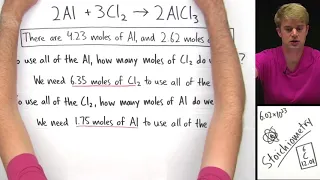 2Al + 3Cl₂ → 2AlCl₃
There are 4.23 moles of Al, and 2.62 moles
to use all of the Al, how many moles of Cl₂ do
We need 6.35 moles of Cl₂ to use all of the
to use all of the Cl₂, how many moles of Al do we
We need 1.75 moles of Al to use all of the
6.02×10²³
Stoichiometry
6
C
12.01